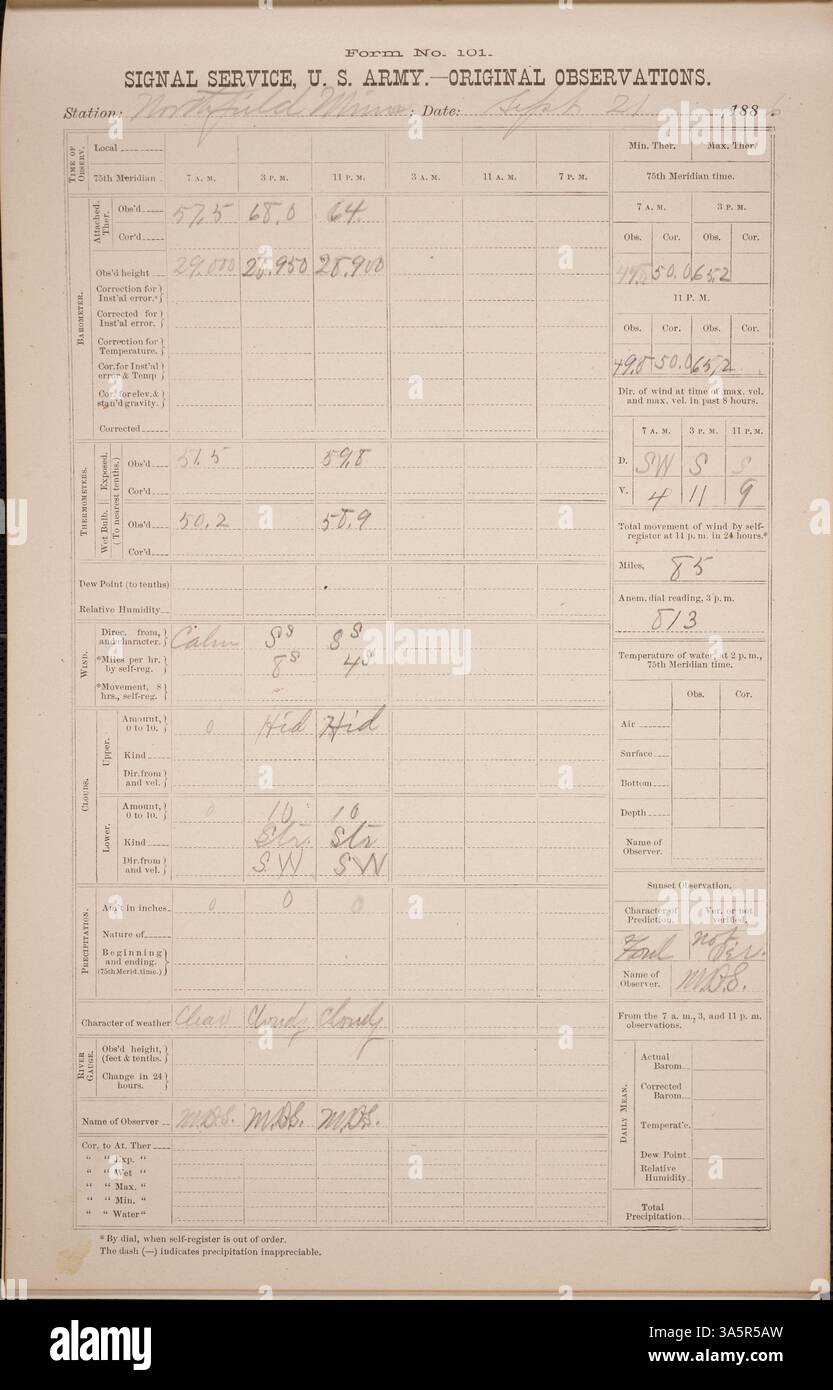 Form No. 101.
SIGNAL SERVICE, U. S. ARMY.—ORIGINAL OBSERVATIONS.
Station: Northfield Minn; Date: Sept 21, 1886
TIME OF OBSERV.
Local
75th Meridian 7 A. M. 3 P. M. 11 P. M. 3 A. M. 11 A. M. 7 P. M.
BAROMETER.
Attached Ther.
Obs'd 57.5 68.0 64.
Cor'd
Obs'd height 29.000 28.950 28.900
Correction for Inst'al error.*
Corrected for Inst'al error.
Correction for Temperature.
Cor. for Inst'al error & Temp
Cor. for elev. & stan'd gravity.
Corrected
THERMOMETERS.
(To nearest tenths.)
Exposed.
Obs'd 51.5 59.8
Cor'd
Wet Bulb.
Obs'd 50.2 58.9
Cor'd
Dew Point (to tenths)
Relative Humidity
WIND.
Direc. from, and character. Calm S S S S
*Miles per hr. by self-reg. 8 S 4 S
*Movement, 8 hrs., self-reg.
CLOUDS.
Upper.
Amount, 0 to 10. 0 Hid Hid
Kind
Dir. from and vel.
Lower.
Amount, 0 to 10. 0 10 10
Kind Str. Str
Dir. from and vel. S.W S W
PRECIPITATION.
Am't in inches 0 0 0
Nature of
Beginning and ending. (75th Merid. time.)
Character of weather Clear Cloudy Cloudy
RIVER GAUGE.
Obs'd height, (feet & tenths.)
Change in 24 hours.
Name of Observer M.D.S. M.D.S. M.D.S.
Cor. to At. Ther
" " Exp. "
" " Wet "
" " Max. "
" " Min. "
" " Water "
*By dial, when self-register is out of order.
The dash (—) indicates precipitation inappreciable.
Min. Ther. Max. Ther
75th Meridian time.
7 A. M. 3 P. M.
Obs. Cor. Obs. Cor.
49.8 50.0 65.2
11 P. M.
Obs. Cor. Obs. Cor.
49.8 50.0 65.2
Dir. of wind at time of max. vel. and max. vel. in past 8 hours.
7 A. M. 3 P. M. 11 P. M.
D. SW S S
V. 4 11 9
Total movement of wind by self-register at 11 p. m. in 24 hours.*
Miles, 85
Anem. dial reading, 3 p. m.
813
Temperature of water, at 2 p. m., 75th Meridian time.
Obs. Cor.
Air
Surface
Bottom
Depth
Name of Observer.
Sunset Observation,
Character of Prediction. Ver. or not verified,
Foul not Ver.
Name of Observer. M.D.S.
From the 7 a. m., 3, and 11 p. m. observations.
DAILY MEAN.
Actual Barom.
Corrected Barom.
Temperat'e.
Dew Point
Relative Humidity
Total Precipitation
alamy
Image ID: 3A5R5AW
www.alamy.com